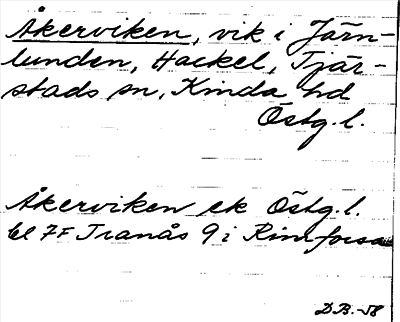 Åkerviken, vik i Järn-
lunden, Hackel, Tjär-
stads sn, Kinda hd
Östg.l.
Åkerviken ek Östg.l.
bl 7F Tranås 9 i Rimforsa
D.B.-58